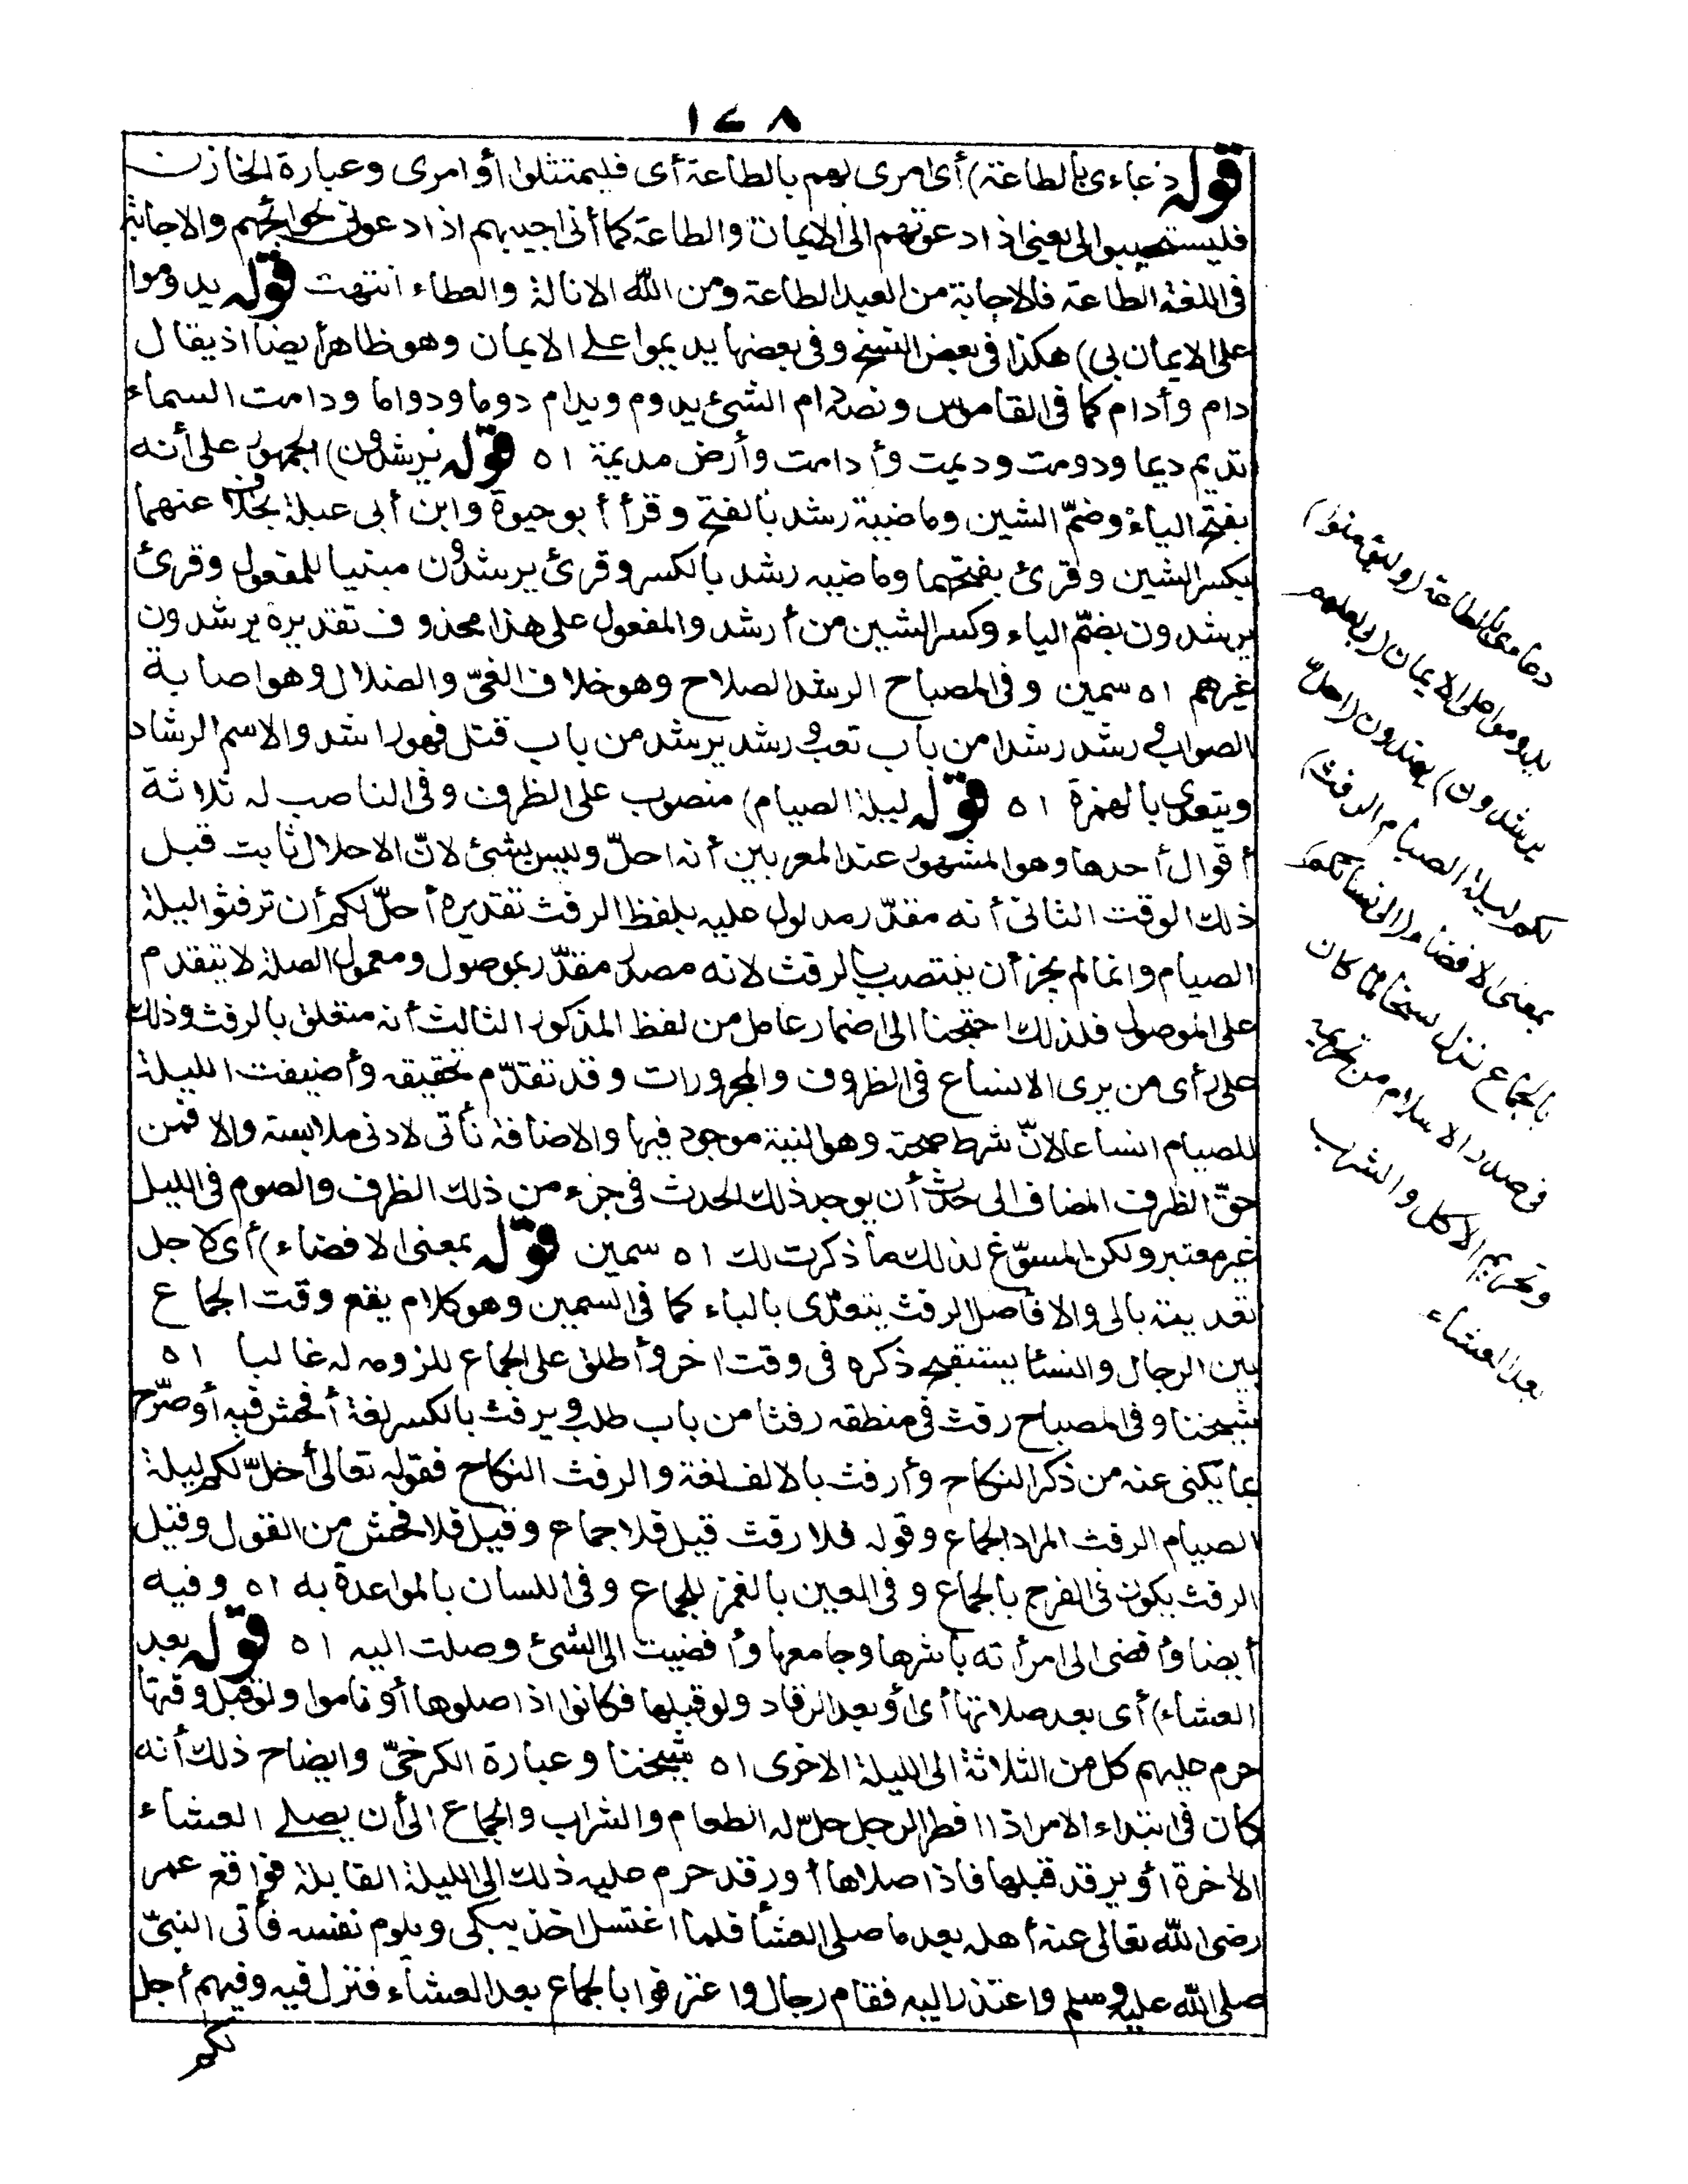 ١٤٨
قوله دعاءى بالطاعة) أى امرى لهم بالطاعة أى فليمتثلوا أوامرى وعبارة الخازن
فليستجيبوا لى يعنى اذا دعوتهم الى الايمان والطاعة كما أنى اجيبهم اذا دعونى لحوائجهم والاجابة
فى اللغة الطاعة فالاجابة من العبد الطاعة ومن الله الانالة والعطاء انتهت قوله يدوموا
على الايمان بى) هكذا فى بعض النسخ وفى بعضها يديموا على الايمان وهو ظاهر أيضا اذ يقال
دام وأدام كما فى القاموس ونصه دام الشئ يدوم ويدام دوما ودواما ودامت السماء
تديم ديما ودومت وديمت وأدامت وأرض مديمة اه قوله يرشدون) الجمهور على أنه
بفتح الياء وضمّ الشين وماضيه رشد بالفتح وقرأ أبو حيوة وابن أبى عبلة بخلاف عنهما
بكسر الشين وقرئ بفتحهما وماضيه رشد بالكسر وقرئ يرشدون مبنيا للمفعول وقرئ
يرشدون بضمّ الياء وكسر الشين من أرشد والمفعول على هذا محذوف تقديره يرشدون
غيرهم اه سمين وفى المصباح الرشد الصلاح وهو خلاف الغىّ والضلال وهو اصابة
الصواب ورشد رشدا من باب تعب ورشد يرشد من باب قتل فهو راشد والاسم الرشاد
ويتعدى بالهمزة اه قوله ليلة الصيام) منصوب على الظرف وفى الناصب له ثلاثة
أقوال أحدها وهو المشهور عند المعربين أنه احلّ وليس بشئ لانّ الاحلال ثابت قبل
ذلك الوقت الثانى أنه مقدّر مدلول عليه بلفظ الرفث تقديره أحلّ لكم أن ترفثوا ليلة
الصيام وانما لم يجز أن ينتصب بالرفث لانه مصدر مقدّر بموصول ومعمول الصلة لا يتقدم
على الموصول فلذلك احتجنا الى اضمار عامل من لفظ المذكور الثالث أنه متعلق بالرفث وذلك
على رأى من يرى الاتساع فى الظروف والمجرورات وقد تقدّم تحقيقه وأضيفت الليلة
للصيام اتساعا لانّ شرط صحته وهو النية موجود فيها والاضافة تأتى لادنى ملابسة والا فمن
حقّ الظرف المضاف الى حدث أن يوجد ذلك الحدث فى جزء من ذلك الظرف والصوم فى الليل
غير معتبر ولكن المسوّغ لذلك ما ذكرت لك اه سمين قوله بمعنى الافضاء) أى لاجل
تعديته بالى والا فأصل الرفث يتعدّى بالباء كما فى السمين وهو كلام يقع وقت الجماع
بين الرجال والنسا يستقبح ذكره فى وقت اخر وأطلق على الجماع للزومه له غالبا اه
شيخنا وفى المصباح رفث فى منطقه رفثا من باب طلب ويرفث بالكسر لغة أفحش فيه أو صرّح
بما يكنى عنه من ذكر النكاح وأرفث بالالف لغة والرفث النكاح فقوله تعالى أحلّ لكم ليلة
الصيام الرفث المراد الجماع وقوله فلا رفث قيل فلا جماع وقيل فلا فحش من القول وقيل
الرفث يكون فى الفرج بالجماع وفى العين بالغمز للجماع وفى اللسان بالمواعدة به اه وفيه
أيضا وأفضى الى امرأته باشرها وجامعها وأفضيت الى الشئ وصلت اليه اه قوله بعد
العشاء) أى بعد صلاتها أى أو بعد الرقاد ولو قبلها فكانوا اذا صلوها أو ناموا ولو قبل وقتها
حرم عليهم كل من الثلاثة الى الليلة الاخرى اه شيخنا وعبارة الكرخىّ وايضاح ذلك أنه
كان فى ابتداء الامر اذا افطر الرجل حلّ له الطعام والشراب والجماع الى أن يصلى العشاء
الاخرة أو يرقد قبلها فاذا صلاها أو رقد حرم عليه ذلك الى الليلة القابلة فواقع عمر
رضى الله تعالى عنه أهله بعد ما صلى العشا فلما اغتسل اخذ يبكى ويلوم نفسه فأتى النبىّ
صلى الله عليه وسلم واعتذر اليه فقام رجال واعترفوا بالجماع بعد العشاء فنزل فيه وفيهم أحل
لكم
دعاءى بالطاعة (وليؤمنوا)
يدوموا على الايمان (بى لعلهم
يرشدون) يهتدون (احلّ
لكم ليلة الصيام الرفث)
بمعنى الافضاء (الى نسائكم)
بالجماع نزل نسخا لما كان
فى صدر الاسلام من تحريمه
وتحريم الاكل والشرب
بعد العشاء